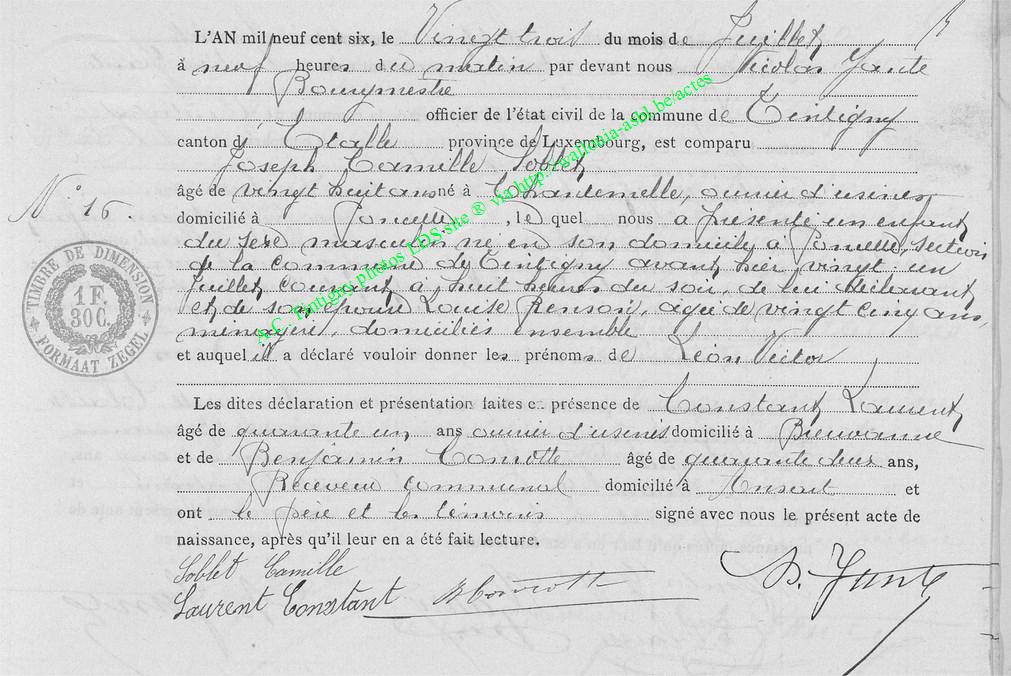 L'AN mil neuf cent six, le Vingt trois du mois de Juillet
à neuf heures du matin par devant nous Nicolas Jante
Bourgmestre
officier de l'état civil de la commune de Tintigny
canton d' Etalle province de Luxembourg, est comparu
Joseph Camille Soblet
âgé de vingt huit ans né à Chantemelle, ouvrier d'usines
domicilié à Poncelle, lequel nous a présenté un enfant
du sexe masculin né en son domicile à Poncelle, section
de la commune de Tintigny avant hier vingt un
Juillet courant à huit heures du soir, de lui déclarant
et de son épouse Louise Renson, agée de vingt cinq ans,
ménagère, domiciliés ensemble
et auquel il a déclaré vouloir donner les prénoms de Léon Victor
Les dites déclaration et présentation faites en présence de Constant Laurent
âgé de quarante un ans ouvrier d'usines domicilié à Breuvanne
et de Benjamin Comotte âgé de quarante deux ans,
Receveur communal domicilié à Ansart et
ont le père et les témoins signé avec nous le présent acte de
naissance, après qu'il leur en a été fait lecture.
Soblet Camille
Laurent Constant B Comotte N. Jante
N° 16
TIMBRE DE DIMENSION
1 F.
30 C.
FORMAAT ZEGEL
A.C. Tintigny photos LDS site ® via http://wallonia-asbl.be/actes